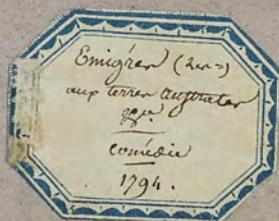 Emigrés (Les)
aux terres australes
comédie
1794.